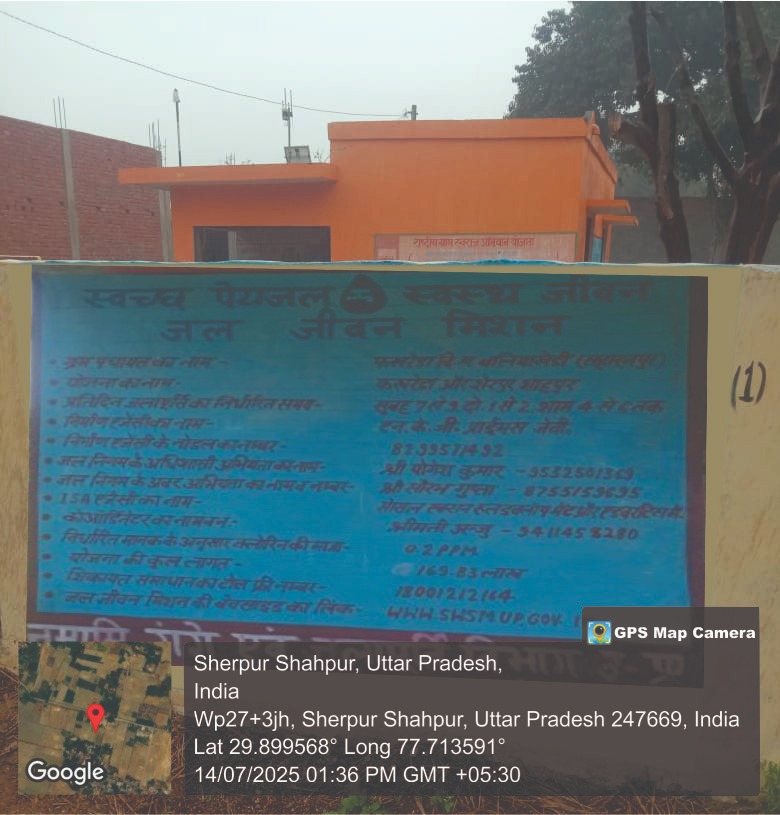 राष्ट्रीय ग्राम स्वराज अभियान योजना
स्वच्छ पेयजल स्वस्थ जीवन
जल जीवन मिशन
(1)
• ग्राम पंचायत का नाम -
• योजना का नाम - और शेरपुर शाहपुर
• प्रतिदिन जलापूर्ति का निर्धारित समय- सुबह 7 से 9 दो. 1 से 2, शाम 4 से 6 तक
• निर्माण एजेंसी का नाम- एन. के. जी. जेवी.
• निर्माण एजेंसी के नोडल का नम्बर-
• जल निगम के अधिशासी अभियंता का नाम- श्री योगेश कुमार -
• जल निगम के अवर अभियंता का नाम व नम्बर- श्री सौरभ गुप्ता - 8755159695
• ISA एजेंसी का नाम-
• कोऑर्डिनेटर का नाम व नं.- श्रीमती अन्जु - 9411458280
• निर्धारित मानक के अनुसार क्लोरिन की मात्रा- 0.2 PPM
• योजना की कुल लागत- 169.83 लाख
• शिकायत समाधान का टोल फ्री नम्बर- 18001212164
• जल जीवन मिशन की वेबसाइड का लिंक- WWW.SWSM.UP.GOV.
नमामि गंगे एवं विभाग उ-प्र
GPS Map Camera
Sherpur Shahpur, Uttar Pradesh,
India
Wp27+3jh, Sherpur Shahpur, Uttar Pradesh 247669, India
Lat 29.899568° Long 77.713591°
14/07/2025 01:36 PM GMT +05:30
Google